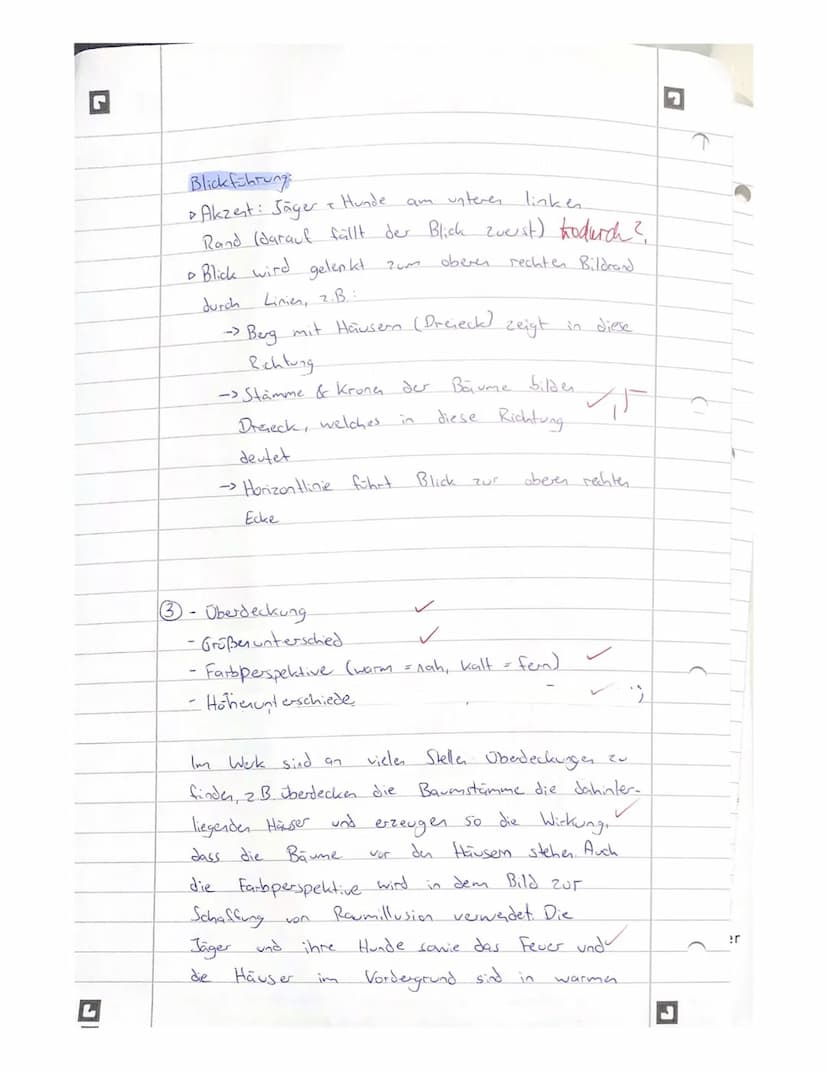 Blickführung:
▹ Akzent: Jäger & Hunde am unteren linken
Rand (darauf fällt der Blick zuerst) Wodurch?
▹ Blick wird gelenkt zum oberen rechten Bildrand
durch Linien, z.B.:
-> Berg mit Häusern (Dreieck) zeigt in diese
Richtung
-> Stämme & Kronen der Bäume bilden
Dreieck, welches in diese Richtung
deutet
-> Horizontlinie führt Blick zur oberen rechten
Ecke
③ - Überdeckung
- Größenunterschied
- Farbperspektive (warm = nah, kalt = fern)
- Höhenunterschiede
Im Werk sind an vielen Stellen Überdeckungen zu
finden, z.B. überdecken die Baumstämme die dahinter-
liegenden Häuser und erzeugen so die Wirkung,
dass die Bäume vor den Häusern stehen. Auch
die Farbperspektive wird in dem Bild zur
Schaffung von Raumillusion verwendet. Die
Jäger und ihre Hunde sowie das Feuer und
die Häuser im Vordergrund sind in warmen
er